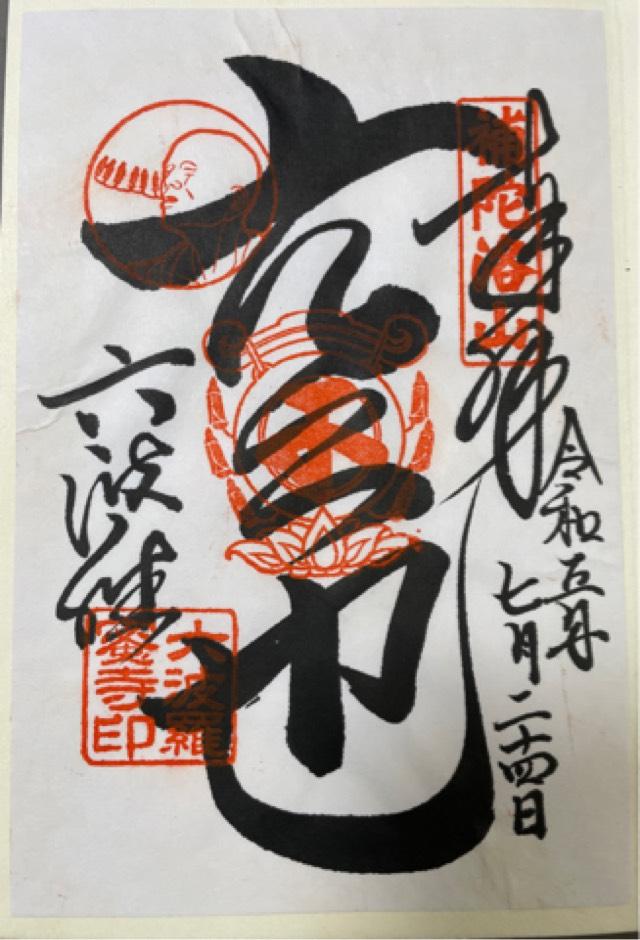 奉拝
補陀洛山
令和五年
七月二十四日
六波羅
六波羅
蜜寺印